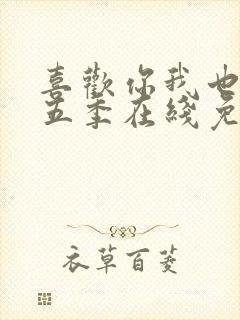 喜歡你我也
五季在綫免
衣草百菱